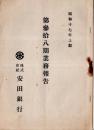 昭和十七年上期
第參拾八期業務報告
株式會社 安田銀行